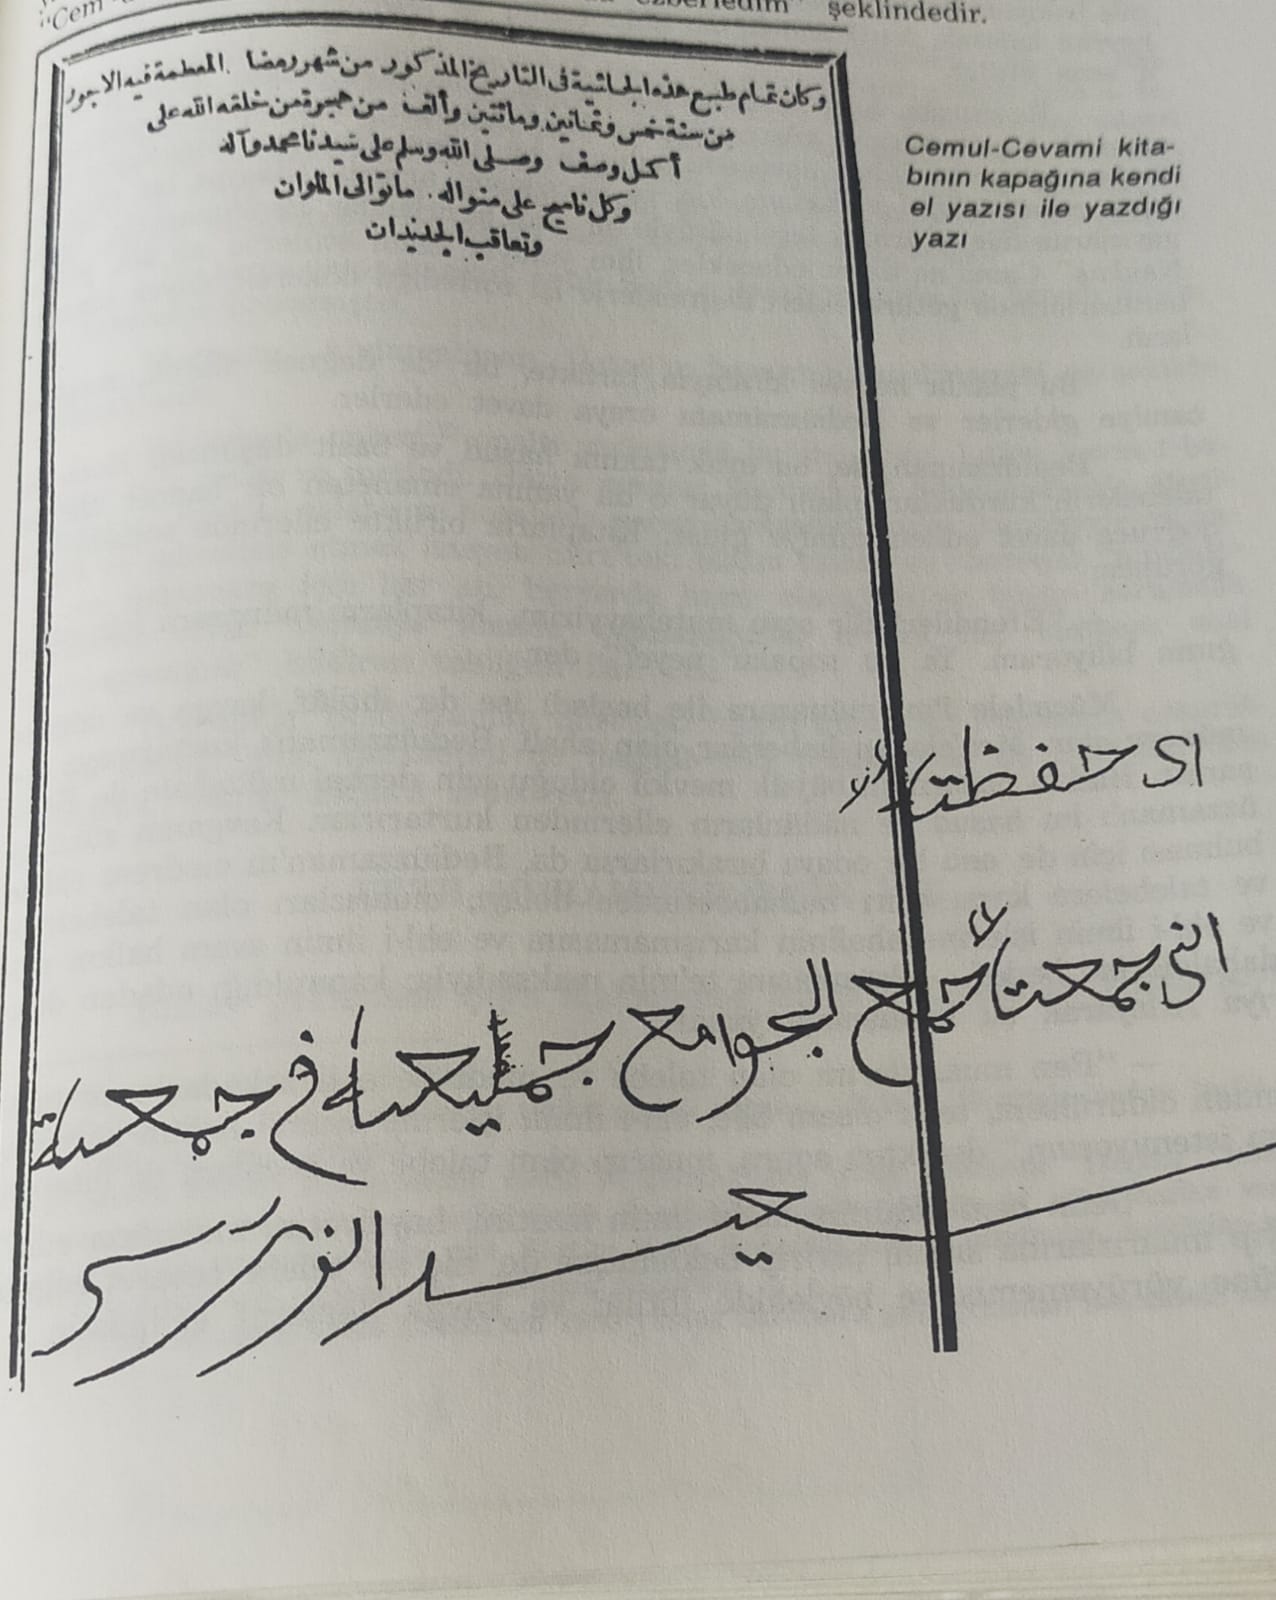 "Cem ezberledim" şeklindedir.
وكان تمام طبع هذه الحاشية فى التاريخ المذكور من شهر رمضا المعظمة فيه الاجور
من سنة خمس وثمانين ومائتين وألف من هجرة من خلقه الله على
أكمل وصف وصلى الله وسلم على سيدنا محمد وآله
وكل ناسج على منواله . ما توالى الملوان
وتعاقب الجديدان
Cemul-Cevami kita-
bının kapağına kendi
el yazısı ile yazdığı
yazı
اى حفظت
انى جمعت جمع الجوامع جميعا فى جمعة
سعيد النورسى